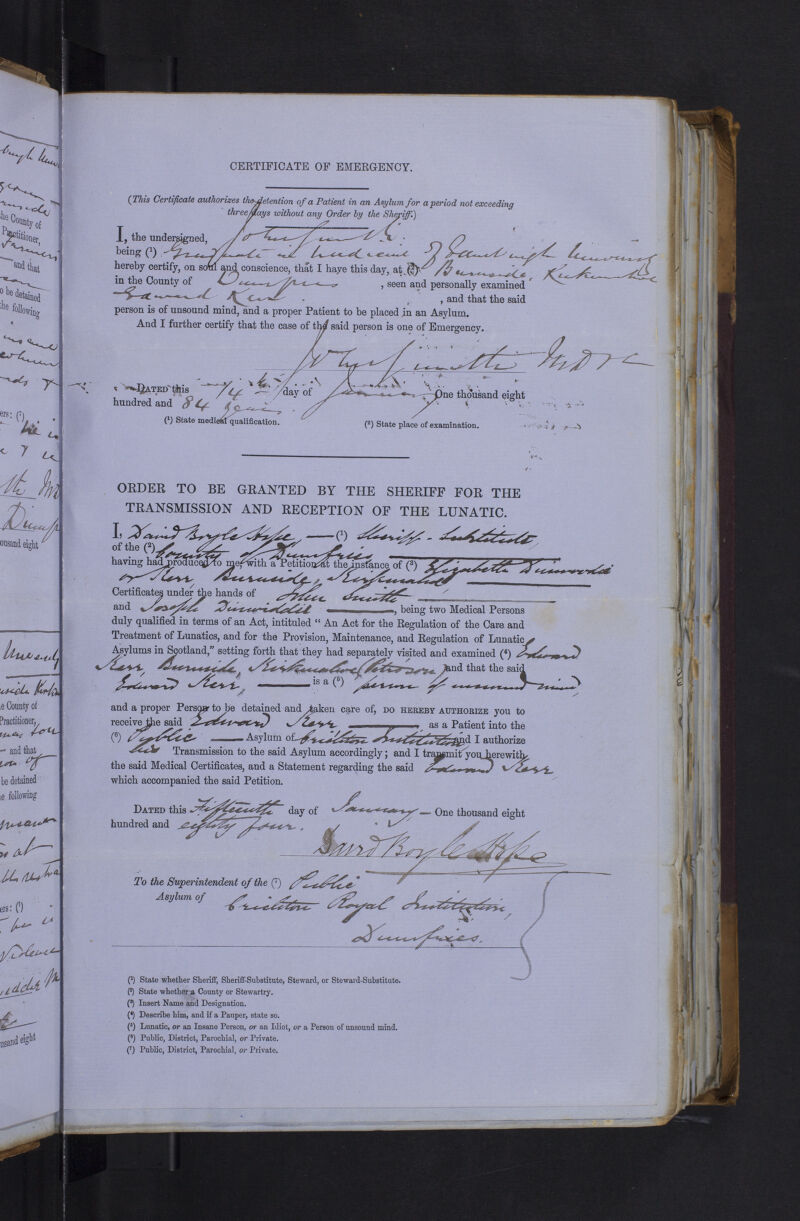 CERTIFICATE OF EMERGENCY.
(This Certificate authorizes the detention of a Patient in an Asylum for a period not exceeding
three days without any Order by the Sheriff.)
I, the undersigned, John Smith
being (¹) Graduate in Medicine of Edinburgh University
hereby certify, on soul and conscience, that I have this day, at (²) Burnside, Kirkmahoe
in the County of Dumfries , seen and personally examined
Edward Kerr , and that the said
person is of unsound mind, and a proper Patient to be placed in an Asylum.
And I further certify that the case of the said person is one of Emergency.
John Smith MD
DATED this 14th day of January One thousand eight
hundred and 84 years.
(¹) State medical qualification. (²) State place of examination.
ORDER TO BE GRANTED BY THE SHERIFF FOR THE
TRANSMISSION AND RECEPTION OF THE LUNATIC.
I, David Boyle Hope, — (¹) Sheriff-Substitute,
of the (²) County of Dumfries
having had produced to me, with a Petition at the instance of (³) Elizabeth Dinwoodie
or Kerr, Burnside, Kirkmahoe
Certificates under the hands of John Smith
and Joseph Dinwiddie , being two Medical Persons
duly qualified in terms of an Act, intituled "An Act for the Regulation of the Care and
Treatment of Lunatics, and for the Provision, Maintenance, and Regulation of Lunatic
Asylums in Scotland," setting forth that they had separately visited and examined (⁴) Edward
Kerr, Burnside, Kirkmahoe and that the said
Edward Kerr, — is a (⁵) person of unsound mind,
and a proper Person to be detained and taken care of, DO HEREBY AUTHORIZE you to
receive the said Edward Kerr — as a Patient into the
(⁶) Public — Asylum of Crichton Institution and I authorize
his Transmission to the said Asylum accordingly; and I transmit you herewith
the said Medical Certificates, and a Statement regarding the said Edward Kerr,
which accompanied the said Petition.
DATED this Fifteenth day of January — One thousand eight
hundred and eighty four.
David Boyle Hope
To the Superintendent of the (⁷) Public
Asylum of Crichton Royal Institution,
Dumfries.
(¹) State whether Sheriff, Sheriff-Substitute, Steward, or Steward-Substitute.
(²) State whether a County or Stewartry.
(³) Insert Name and Designation.
(⁴) Describe him, and if a Pauper, state so.
(⁵) Lunatic, or an Insane Person, or an Idiot, or a Person of unsound mind.
(⁶) Public, District, Parochial, or Private.
(⁷) Public, District, Parochial, or Private.